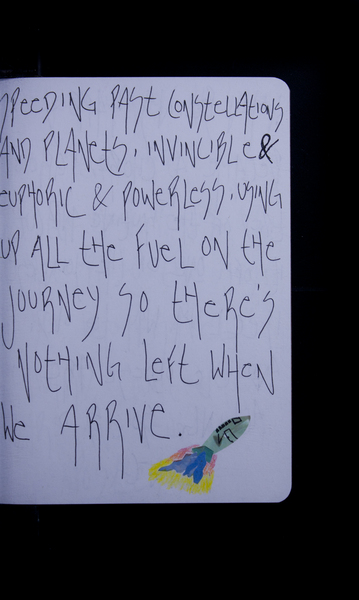 SPEEDING PAST CONSTELLATIONS
AND PLANETS, INVINCIBLE &
EUPHORIC & POWERLESS, USING
UP ALL the FUEL ON the
JOURNEY SO tHERE'S
NOTHING LEFT WHEN
WE ARRIVE.